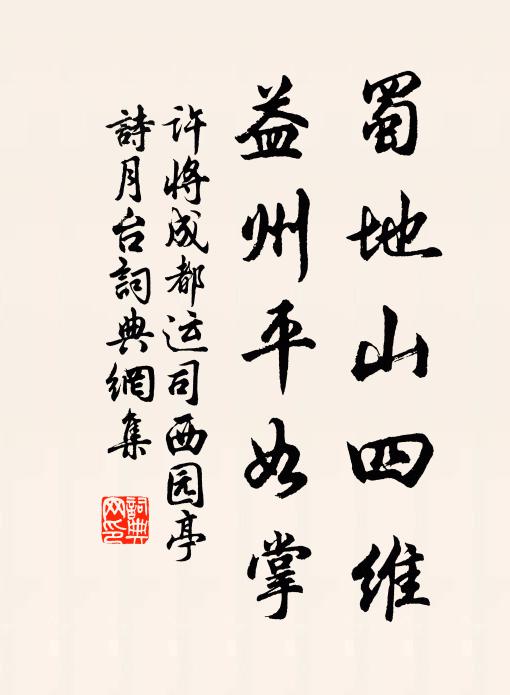 蜀地山四维
益州平如掌
许将成都运司西园亭
詩月台詞典網集
詞典
网印